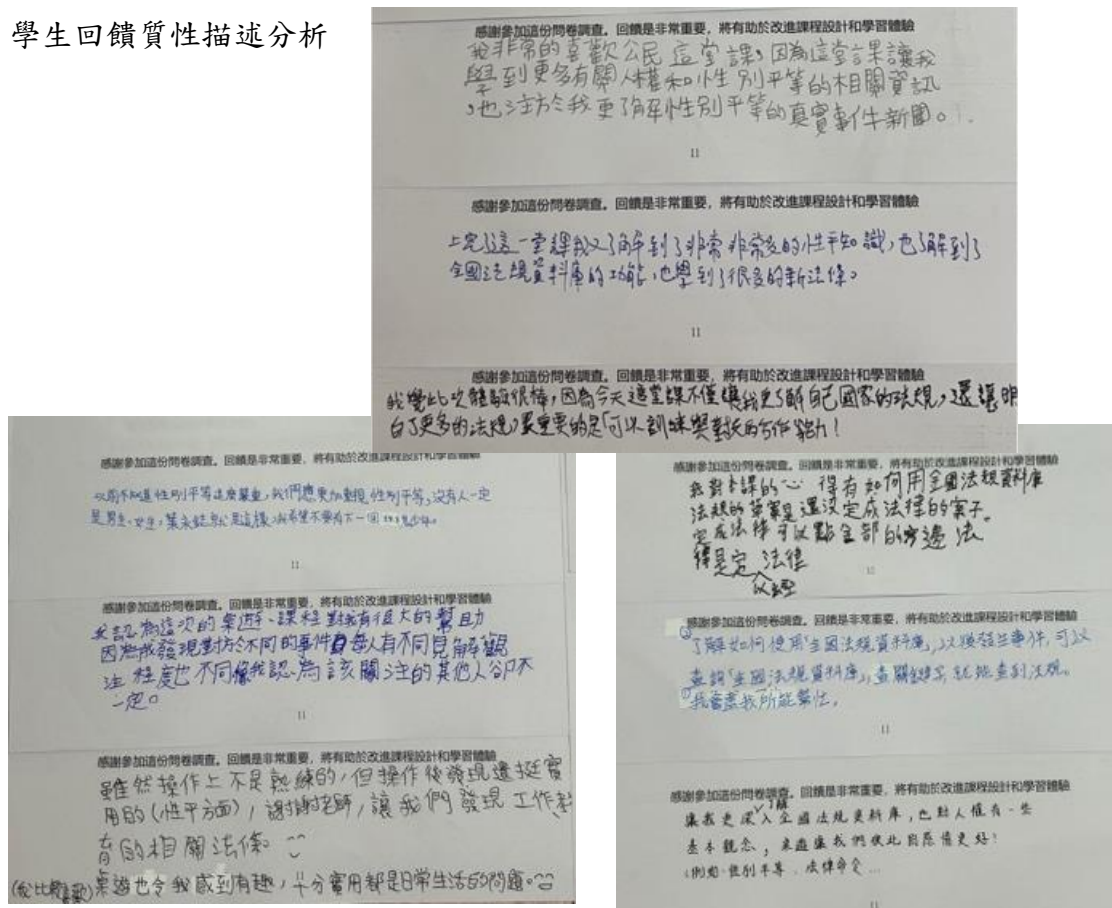 學生回饋質性描述分析
感謝參加這份問卷調查。回饋是非常重要，將有助於改進課程設計和學習體驗
我非常的喜歡公民這堂課，因為這堂課讓我
學到更多有關人權和性別平等的相關資訊
，也注於我更了解性別平等的真實事件新聞。
11
感謝參加這份問卷調查。回饋是非常重要，將有助於改進課程設計和學習體驗
上完了這一堂課我又了解到了非常非常多的性平知識，也了解到了
全國法規資料庫的功能，也學到了很多的新法條。
11
感謝參加這份問卷調查。回饋是非常重要，將有助於改進課程設計和學習體驗
我覺此次體驗很棒，因為今天這堂課不僅讓我更了解自己國家的法規，還讓明
白了更多的法規，最重要的是「可以訓練與對友的合作能力！
感謝參加這份問卷調查。回饋是非常重要，將有助於改進課程設計和學習體驗
以前不知道性別平等這麼嚴重，我們應更加重視性別平等，沒有人一定
是男生、女生，葉永鋕就是這樣，我希望不要有下一個玫瑰少年。
11
感謝參加這份問卷調查。回饋是非常重要，將有助於改進課程設計和學習體驗
我認為這次的桌遊、課程對我有很大的幫助
因為我發現對於不同的事件每人有不同見解觀
注程度也不同像我認為該關注的其他人卻不
一定。
11
感謝參加這份問卷調查。回饋是非常重要，將有助於改進課程設計和學習體驗
雖然操作上不是熟練的，但操作後發現還挺實
用的（性平方面），謝謝老師，讓我們發現工作教
育的相關法條
(我比較喜歡)桌遊也令我感到有趣，十分實用都是日常生活的問題。
感謝參加這份問卷調查。回饋是非常重要，將有助於改進課程設計和學習體驗
我對本課的心得有如何用全國法規資料庫
法規的草案是還沒定成法律的案子。
完成法律可以點全部的 法
律是定法律
以經
感謝參加這份問卷調查。回饋是非常重要，將有助於改進課程設計和學習體驗
了解如何使用「全國法規資料庫」，以後發生事件，可以
查詢「全國法規資料庫」，查關鍵字就能查到法規。
我會盡我所能幫忙。
11
感謝參加這份問卷調查。回饋是非常重要，將有助於改進課程設計和學習體驗
讓我更深入了解全國法規資料庫，也對人權有一些
基本觀念，桌遊讓我們彼此的感情更好！
(例如：性別平等、法律命令...
11